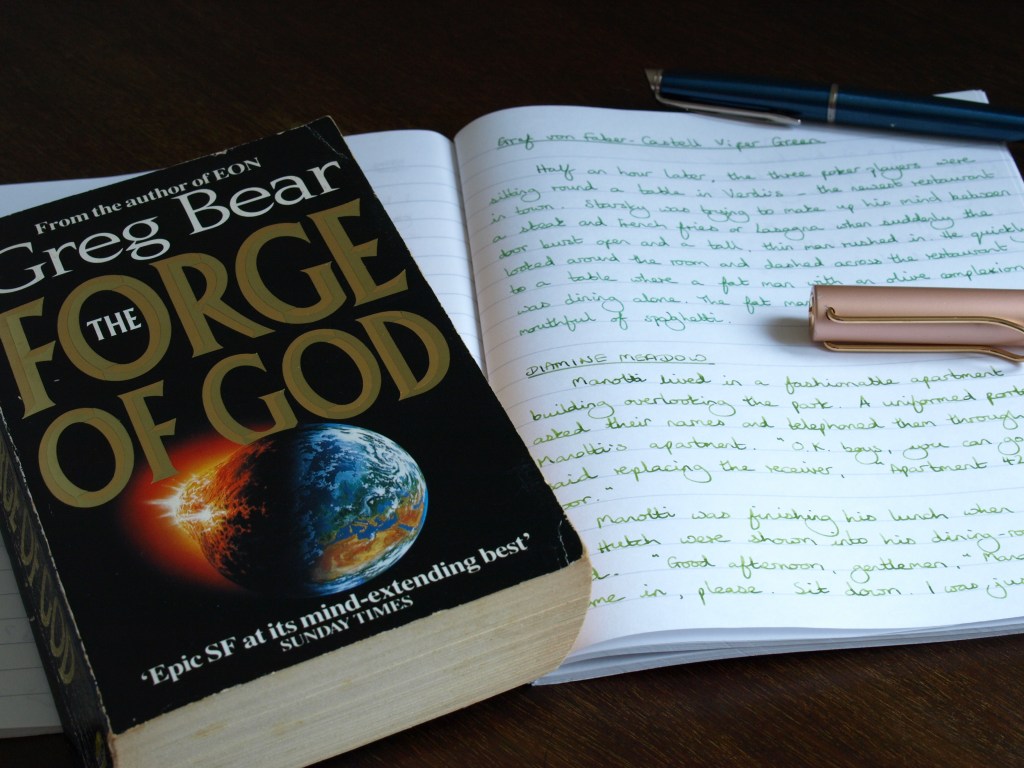 From the author of EON
Greg Bear
THE
FORGE
OF GOD
'Epic SF at its mind-extending best'
SUNDAY TIMES
Graf von Faber-Castell Viper Green
Half an hour later, the three poker players were
sitting round a table in Verdi's - the newest restaurant
in town. Starsky was trying to make up his mind between
a steak and French fries or lasagna when suddenly the
door burst open and a tall thin man rushed in. He quickly
looked around the room and dashed across the restaurant
to a table where a fat man with an olive complexion
was dining alone. The fat man
mouthful of spaghetti.
DIAMINE MEADOW
Manotti lived in a fashionable apartment
building overlooking the park. A uniformed porte
asked their names and telephoned them through
Manotti's apartment. "O.K. boys, you can go
said replacing the receiver, "Apartment 42
oor."
Manotti was finishing his lunch when
Hutch were shown into his dining-ro
d. "Good afternoon, gentlemen," Mano
me in, please. Sit down. I was jus